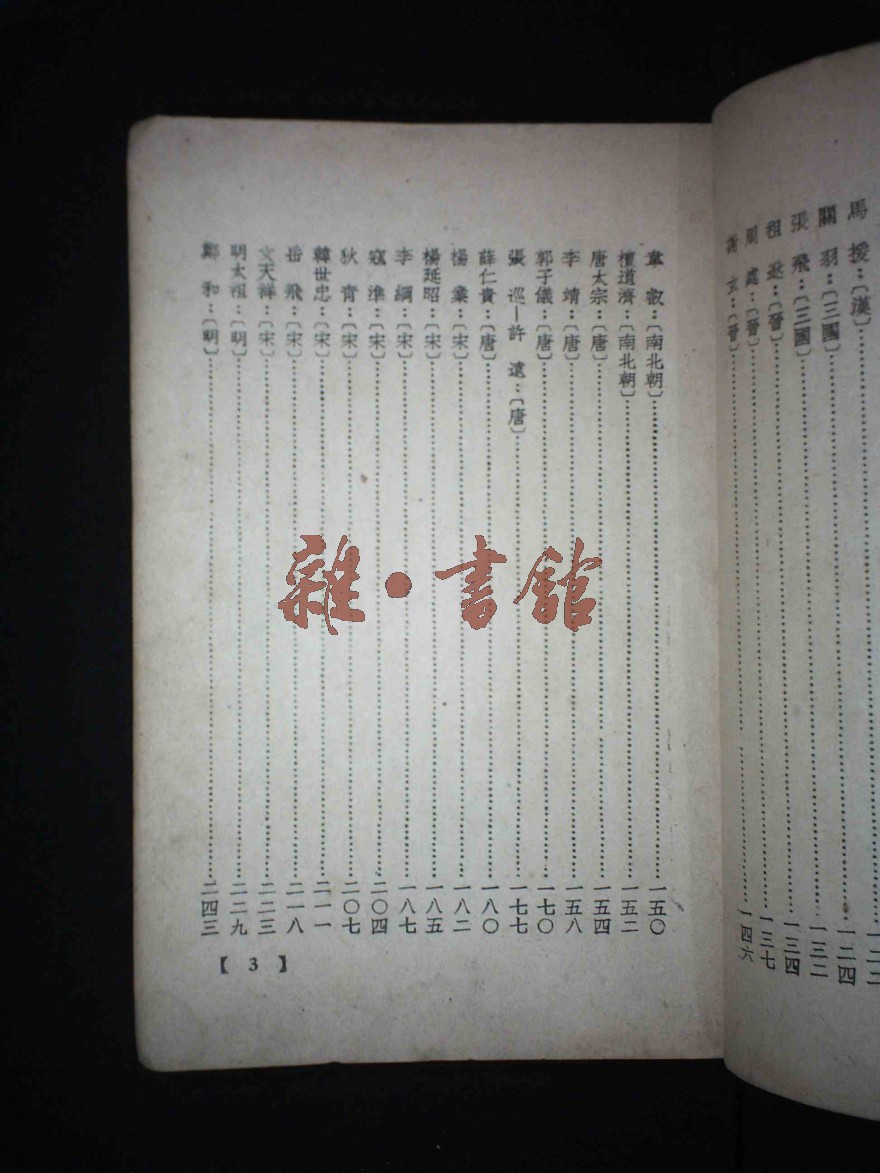 馬　援：〔漢〕………一二二
關　羽：〔三國〕………一二四
張　飛：〔三國〕………一三二
祖　逖：〔晉〕………一三四
周　處：〔晉〕………一三七
謝　玄：〔晉〕………一四六
韋　叡：〔南北朝〕………一五〇
檀道濟：〔南北朝〕………一五二
唐太宗：〔唐〕………一五四
李　靖：〔唐〕………一五八
郭子儀：〔唐〕………一七〇
張　巡—許　遠：〔唐〕………一七七
薛仁貴：〔唐〕………一八〇
楊　業：〔宋〕………一八二
楊延昭：〔宋〕………一八五
李　綱：〔宋〕………一八七
寇　準：〔宋〕………二〇四
狄　青：〔宋〕………二〇七
韓世忠：〔宋〕………二一一
岳　飛：〔宋〕………二一八
文天祥：〔宋〕………二二三
明太祖：〔明〕………二二九
鄭　和：〔明〕………二四三
【 3 】
雜·書館